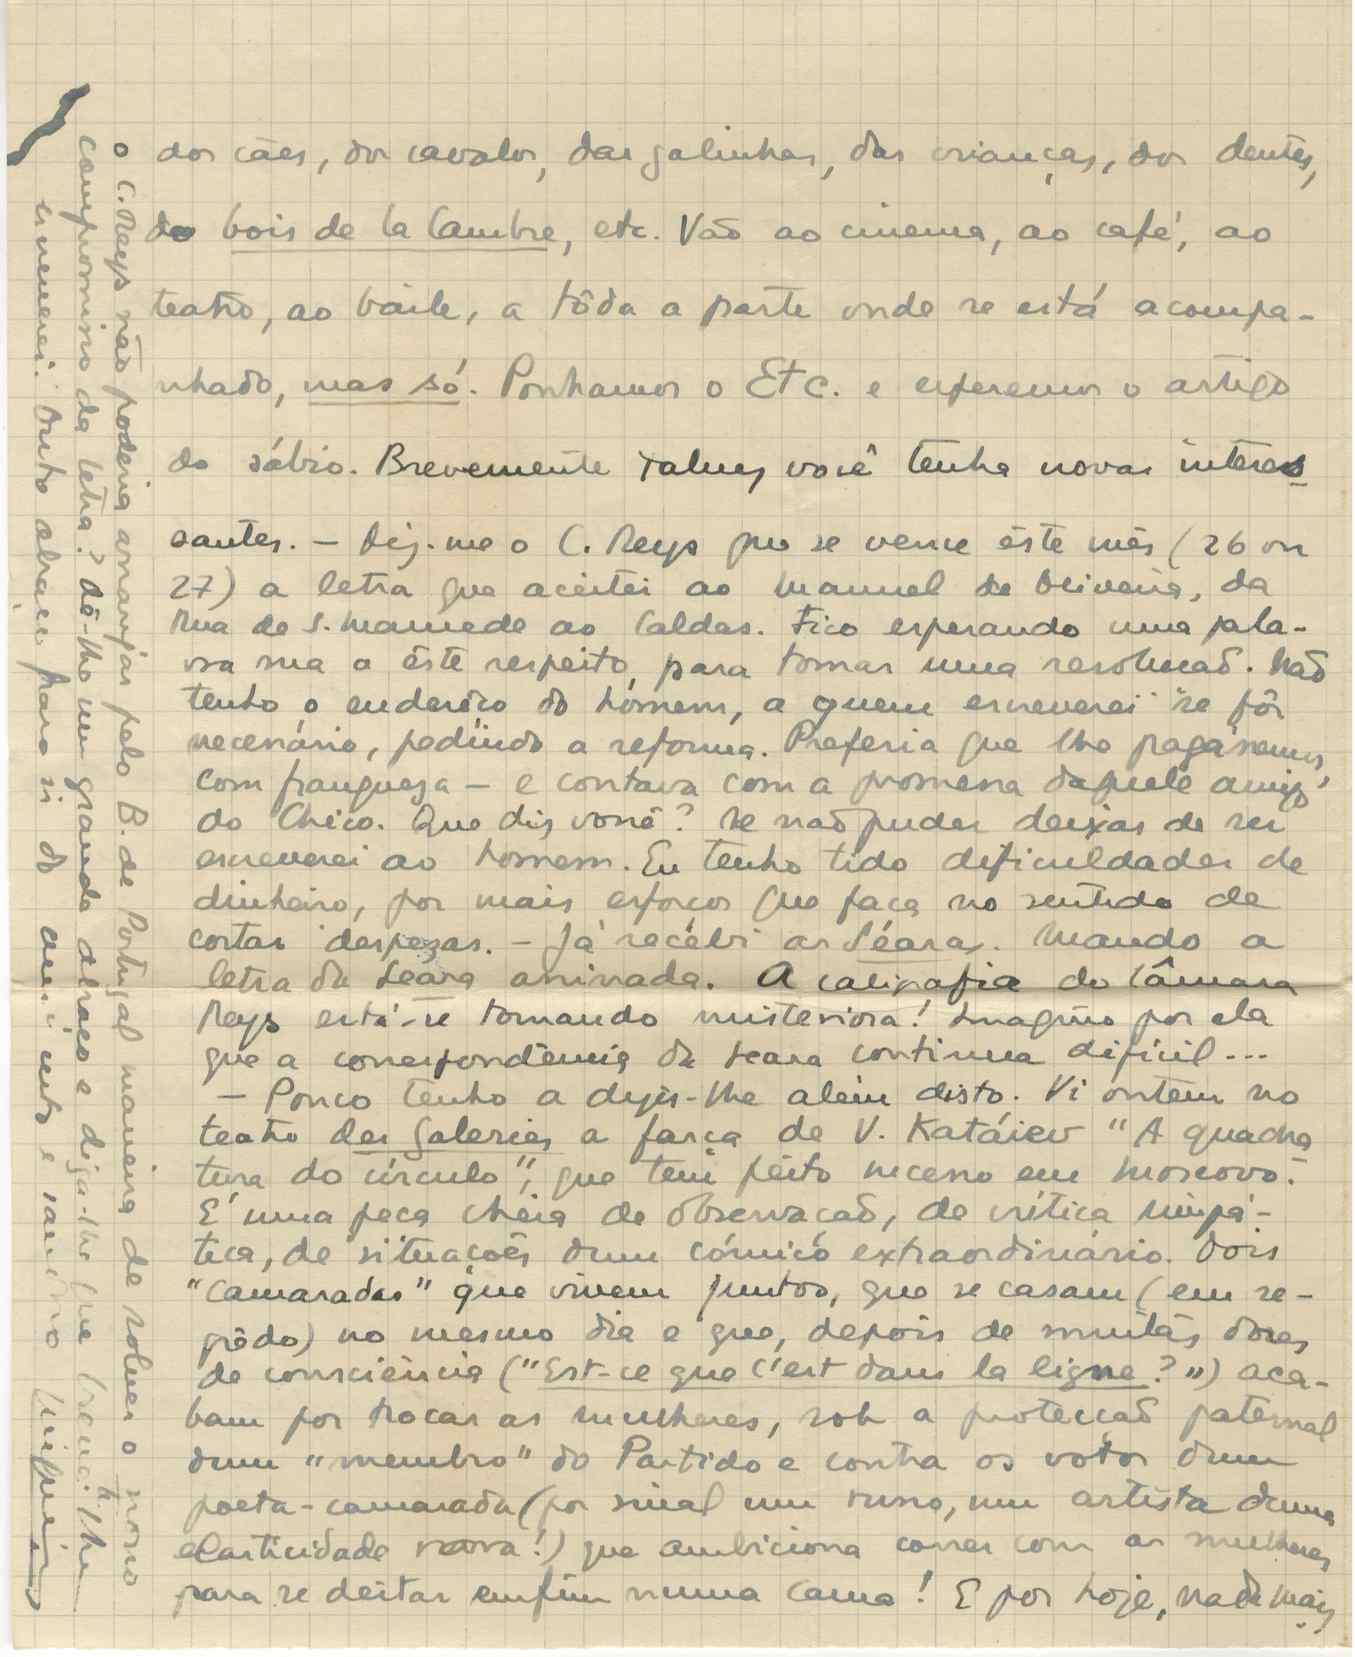 dos cães, dos cavalos, das galinhas, das crianças, dos dentes,
do bois de la Cambre, etc. Vão ao cinema, ao café, ao
teatro, ao baile, a tôda a parte onde se está acompa-
nhado, mas só. Ponhamos o Etc. e esperemos o artigo
do sábio. Brevemente talvez você tenha novas interes
santes. — Diz-me o C. Reys que se vence êste mês (26 ou
27) a letra que aceitei ao Manuel de Oliveira, da
Rua de S. Mamede ao Caldas. Fico esperando uma pala-
vra sua a êste respeito, para tomar uma resolução. Não
tenho o enderêço do homem, a quem escreverei se fôr
necessário, pedindo a reforma. Preferia que lhe pagássemos,
com franqueza — e contava com a promessa daquele amigo
do Chico. Que diz você? Se não puder deixar de ser
escreverei ao homem. Eu tenho tido dificuldades de
dinheiro, por mais esforços que faça no sentido de
cortar despezas. — Já recebi as Séaras. Mando a
letra da Seara assinada. A caligrafia do Câmara
Reys está-se tornando misteriosa! Imagino por ela
que a correspondência da Seara continua difícil...
— Pouco tenho a dizer-lhe alem disto. Vi ontem no
teatro des Galeries a farça de V. Katáiev "A quadra
tura do círculo", que tem feito sucesso em Moscovo.
É uma peça cheia de observação, de crítica simpá-
tica, de situações dum cómico extraordinário. Dois
"camaradas" que vivem juntos, que se casam (em se-
grêdo) no mesmo dia e que, depois de muitas dores
de consciência ("Est-ce que c'est dans la ligne?") aca-
bam por trocar as mulheres, sob a protecção paternal
dum "membro" do Partido e contra os votos dum
poeta-camarada (por sinal um russo, um artista duma
elasticidade rara!) que ambiciona correr com as mulheres
para se deitar emfim numa cama! E por hoje, nada mais
o C. Reys não poderia arranjar pelo B. de Portugal maneira de solver o nosso
compromisso da letra? Dê-lhe um grande abraço e diga-lhe que lhe
escreverei. Outo abraço para si do amigo muito e